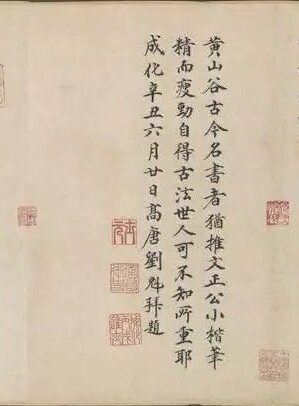 黄山谷古今名書者猶推文正公小楷筆
精而瘦勁自得古法世人可不知所重耶
成化辛丑六月廿日高唐劉魁拜題